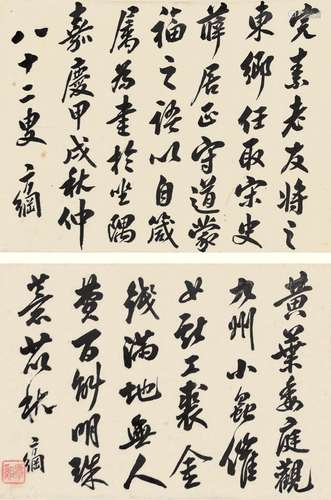 素老友將之
東鄉任取宋史
薛居正守道蒙
福之語以自箴
屬為書於坐隅
嘉慶甲戌秋仲
八十二叟方綱
黃葉委庭觀
九州小蟲催
女獻工裘金
錢滿地無人
費百斛明珠
薏苡秋 方綱